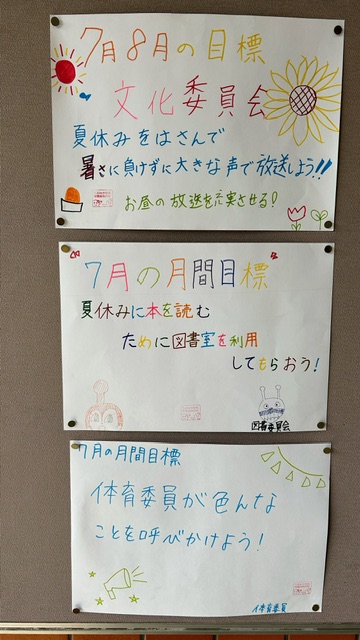 7月8月の目標
文化委員会
夏休みをはさんで
暑さに負けずに大きな声で放送しよう!!
お昼の放送を充実させる!
7月の月間目標
夏休みに本を読む
ために図書室を利用
してもらおう!
図書委員会
7月の月間目標
体育委員が色んな
ことを呼びかけよう!
体育委員